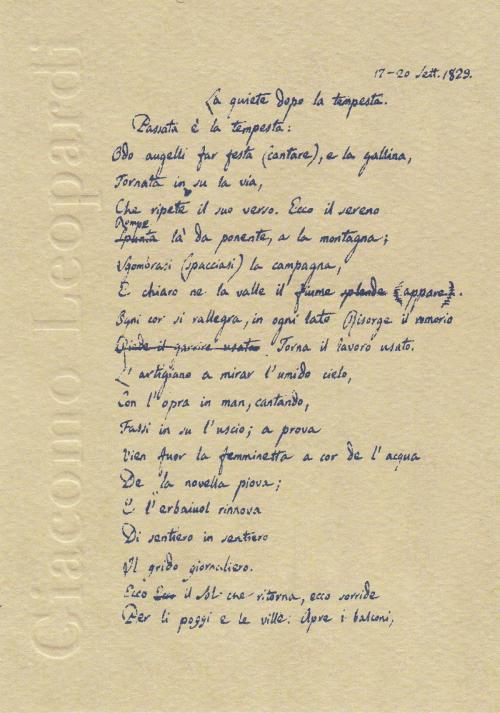 Giacomo Leopardi
17-20 Sett. 1829.
La quiete dopo la tempesta.
Passata è la tempesta:
Odo augelli far festa (cantare), e la gallina,
Tornata in su la via,
Che ripete il suo verso. Ecco il sereno
Rompe
Spunta là da ponente, a la montagna;
Sgombrasi (spacciasi) la campagna,
E chiaro ne la valle il fiume splende (appare).
Ogni cor si rallegra, in ogni lato Risorge il romorio
Riede il garrire usato. Torna il lavoro usato.
L'artigiano a mirar l'umido cielo,
Con l'opra in man, cantando,
Fassi in su l'uscio; a prova
Vien fuor la femminetta a cor de l'acqua
De la novella piova;
E l'erbaiuol rinnova
Di sentiero in sentiero
Il grido giornaliero.
Ecco Ecco il Sol che ritorna, ecco sorride
Per li poggi e le ville. Apre i balconi,